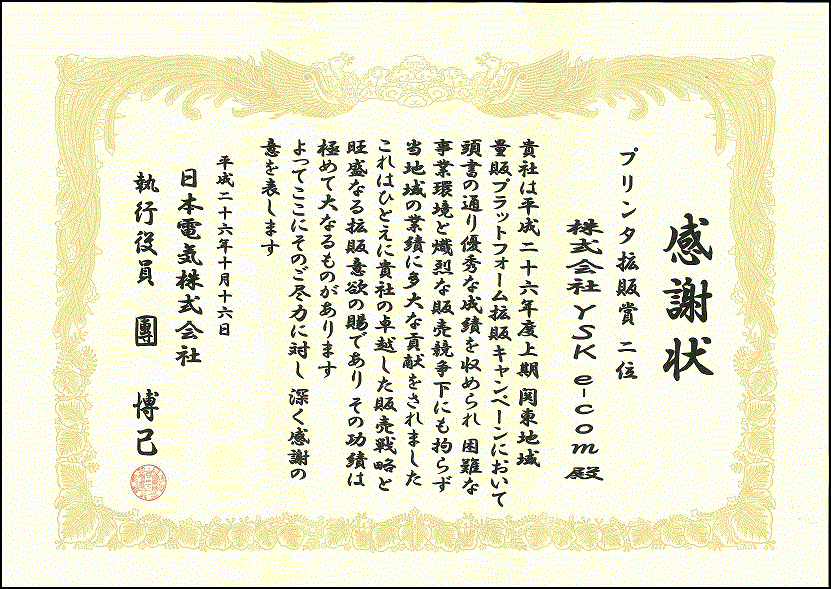 感謝状
プリンタ拡販賞 二位
株式会社 YSK e-com 殿
貴社は平成二十六年度上期 関東地域
量販プラットフォーム拡販キャンペーンにおいて
頭書の通り優秀な成績を収められ 困難な
事業環境と熾烈な販売競争下にも拘らず
当地域の業績に多大な貢献をされました
これはひとえに貴社の卓越した販売戦略と
旺盛なる拡販意欲の賜であり その功績は
極めて大なるものがあります
よってここにそのご尽力に対し 深く感謝の
意を表します
平成二十六年十月十六日
日本電気株式会社
執行役員 團 博己